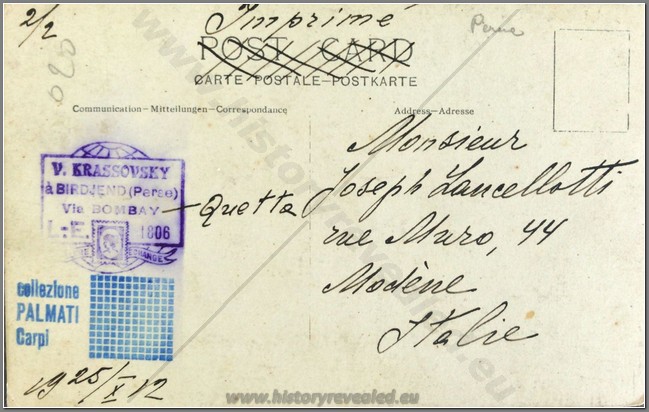 2/2
Imprimé
Perse
020
POST CARD
CARTE POSTALE-POSTKARTE
Communication-Mitteilungen-Correspondance
Address-Adresse
V. KRASSOVSKY
à BIRDJEND (Perse)
Via BOMBAY - Quetta
L.-E. 1806
Monsieur
Joseph Lancellotti
rue Muro, 44
Modène
Italie
collezione
PALMATI
Carpi
1925/X 12
www.historyrevealed.eu
www.historyrevealed.eu